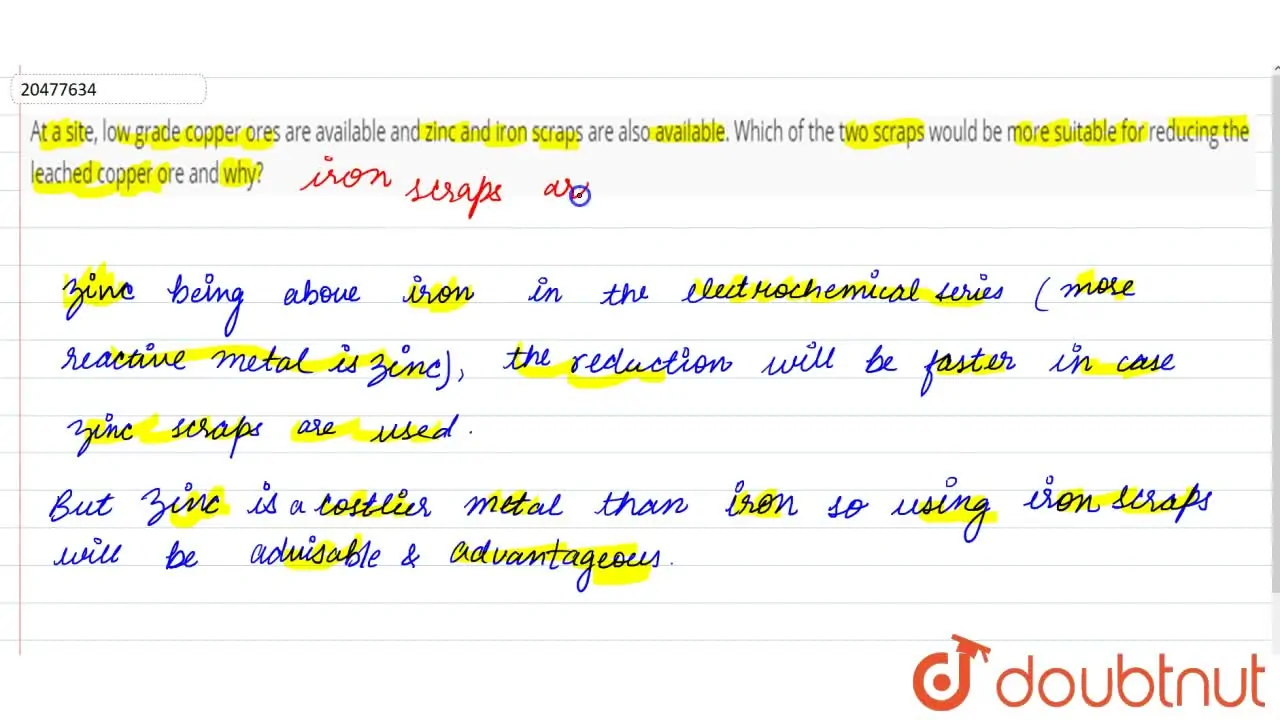 20477634
At a site, low grade copper ores are available and zinc and iron scraps are also available. Which of the two scraps would be more suitable for reducing the
leached copper ore and why?
iron scraps are
zinc being above iron in the electrochemical series (more
reactive metal is zinc), the reduction will be faster in case
zinc scraps are used.
But zinc is a costlier metal than iron so using iron scraps
will be advisable & advantageous.
doubtnut